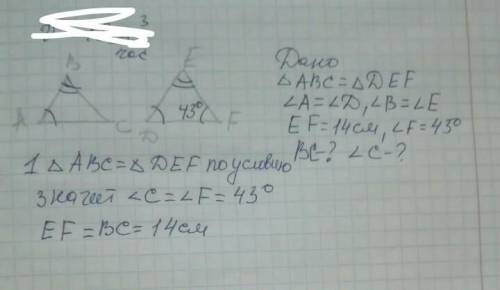 3
B
E
A
C
D
43°
F
Дано
△ABC=△DEF
∠A=∠D, ∠B=∠E
EF=14см, ∠F=43°
BC-? ∠C-?
1 △ABC=△DEF по условию
Значит ∠C=∠F=43°
EF=BC=14см